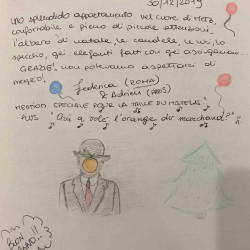 30/12/2019
Uno splendido appartamento nel cuore di Metz,
confortabile e pieno di piccole attenzioni.
L'albero di natale, le candele, le luci, lo
specchio, gli elefanti fatti con gli asciugamani...
GRAZIE! non potevamo aspettarci di
meglio!
Federica (ROMA)
& Adrien (PARIS)
MENTION SPECIALE POUR LA TAILLE DU MATELAS
PLUS "Qui a volé l'orange du marchand?"
BON
ANNO!!